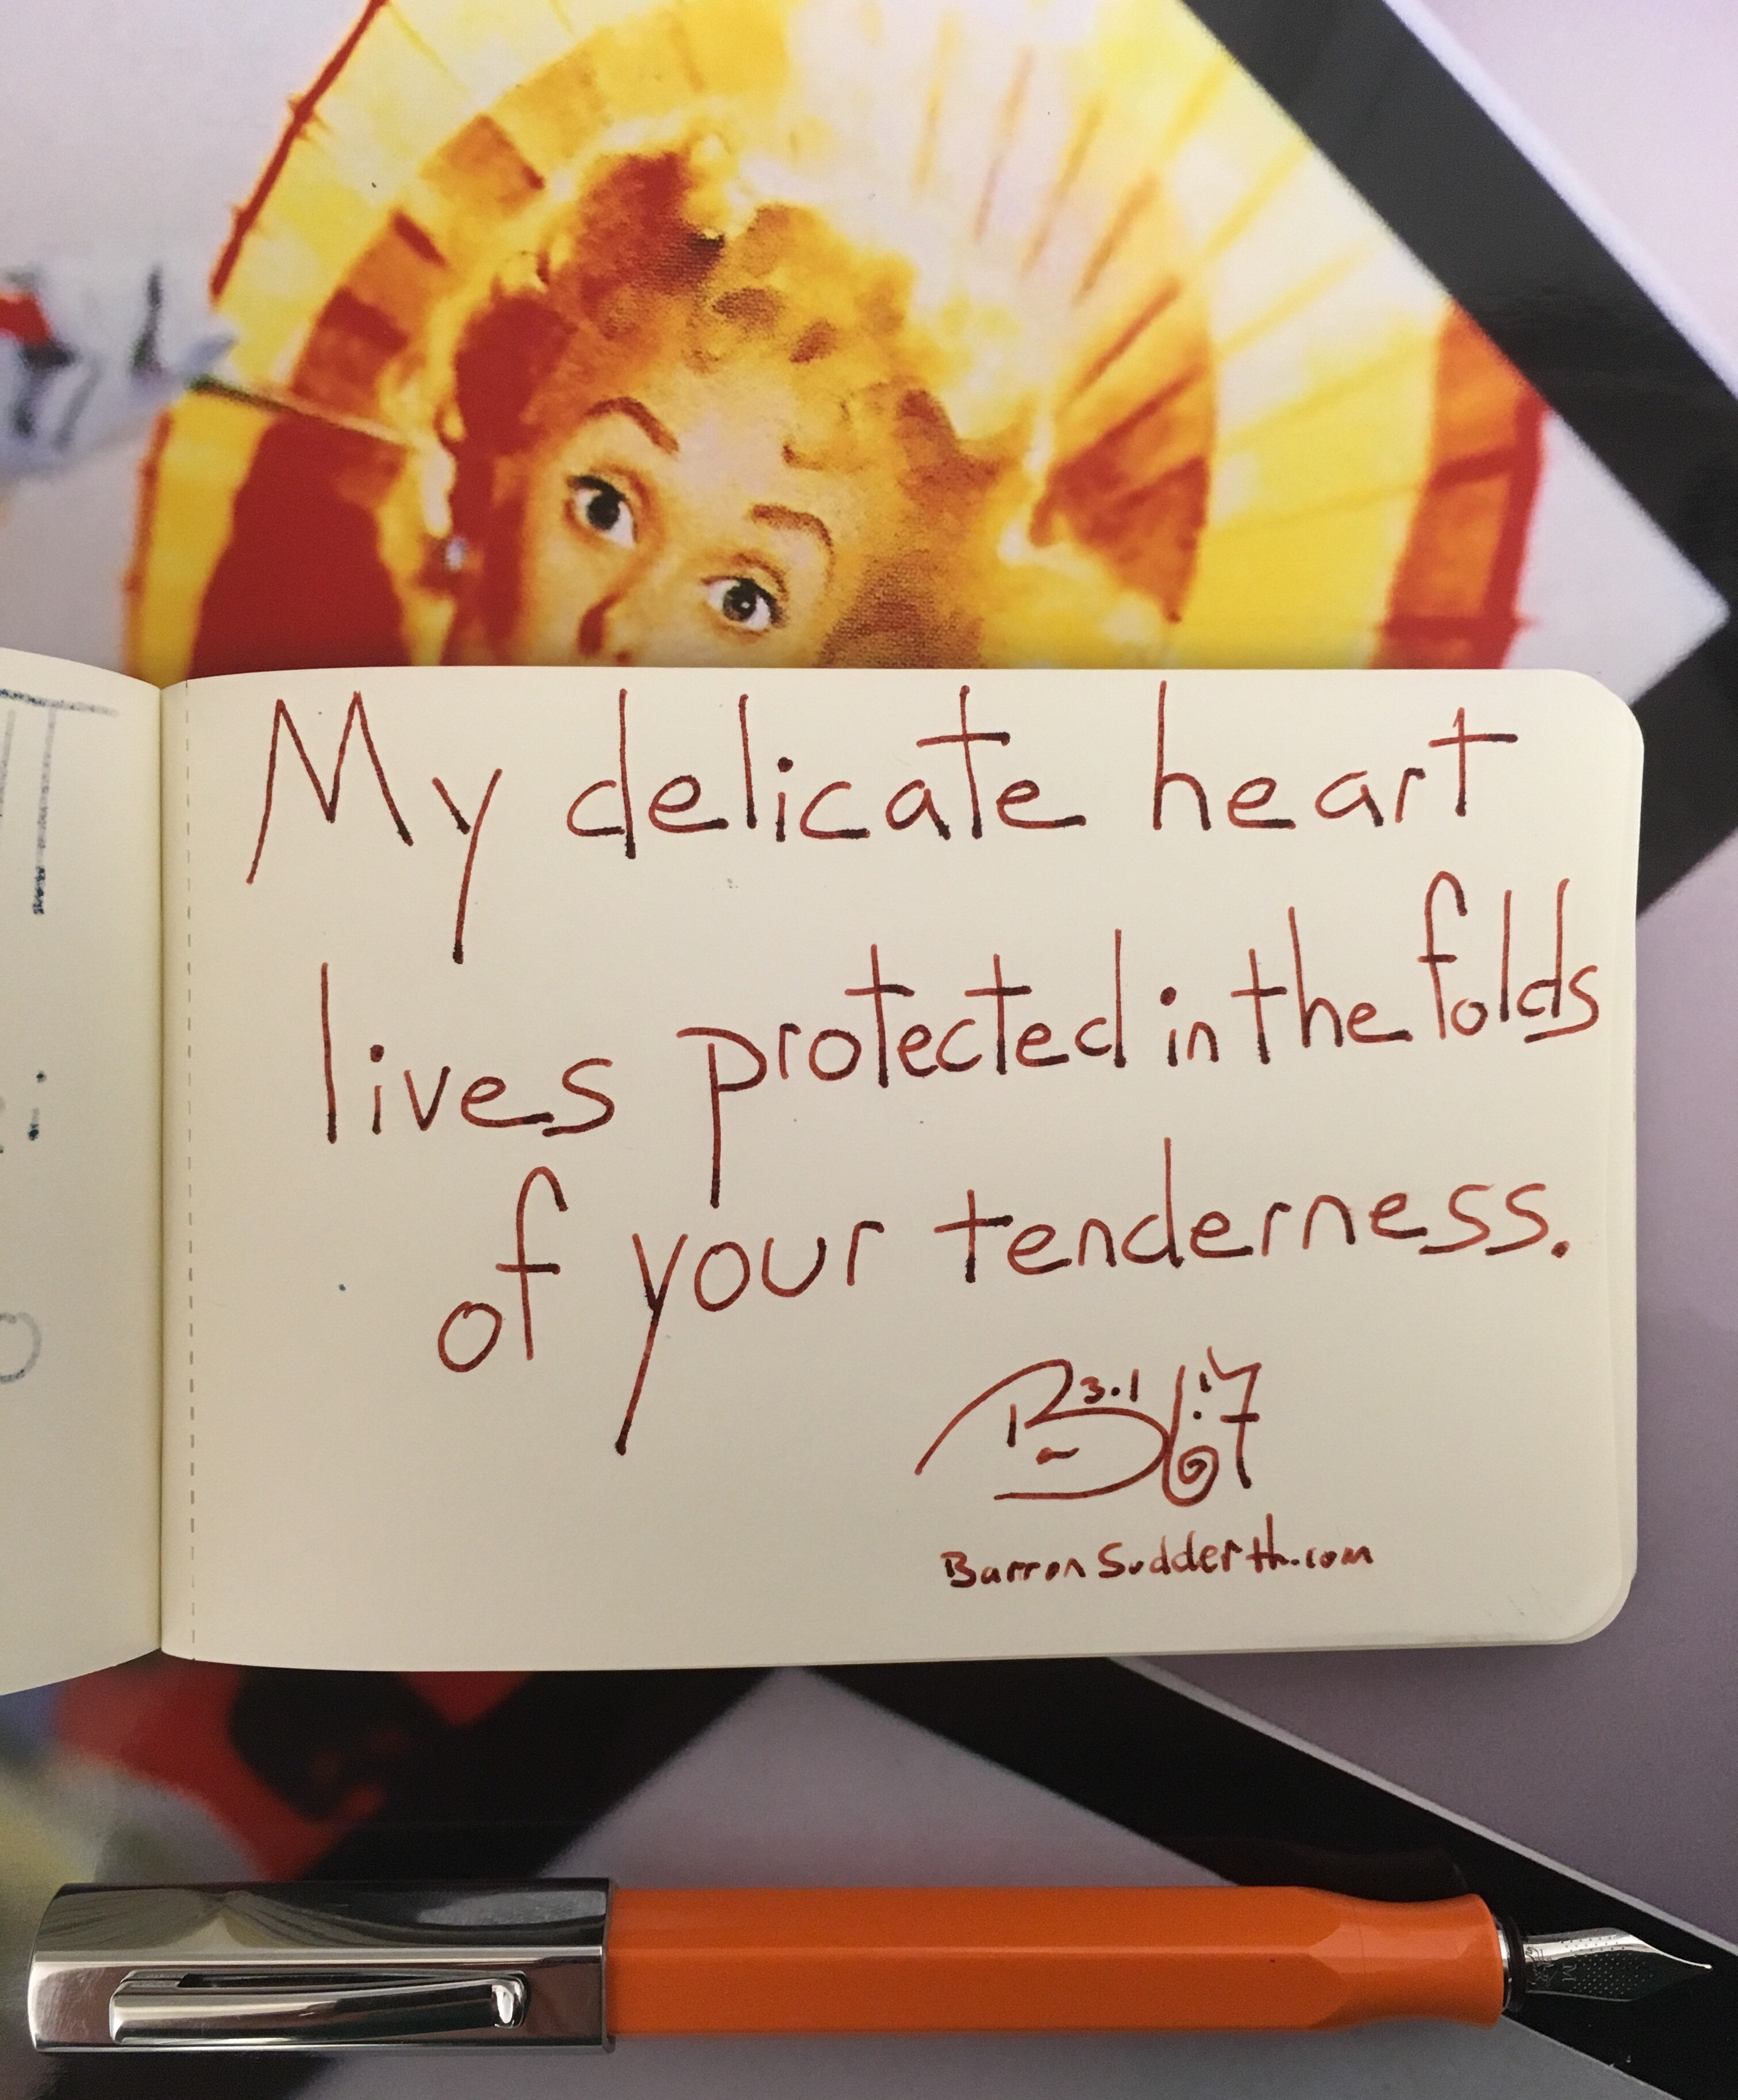 My delicate heart
lives protected in the folds
of your tenderness.
3.1
'17
BarronSudderth.com
M